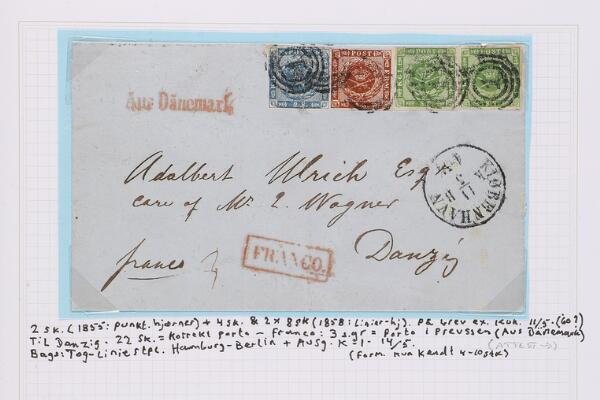 Aus Dänemark
Adalbert Ulrich Esq
care of Mr L. Wagner
Danzig
franco
FRANCO.
KIØBENHAVN
11/5
2 sk. (1855: punkt. hjørner) + 4 sk. & 2 x 8 sk (1858: Linier-hj). på brev ex. Kbh. 11/5-(60?)
Til Danzig. 22 sk. = korrekt porto - Franco: 3 sgr = porto i Preussen (Aus Dänemark)
Bags: Tog-Linie stpl. Hamburg-Berlin + Ausg. K=1- 14/5.
(ATTEST →)
(Form. kun kendt 4-10 stk)